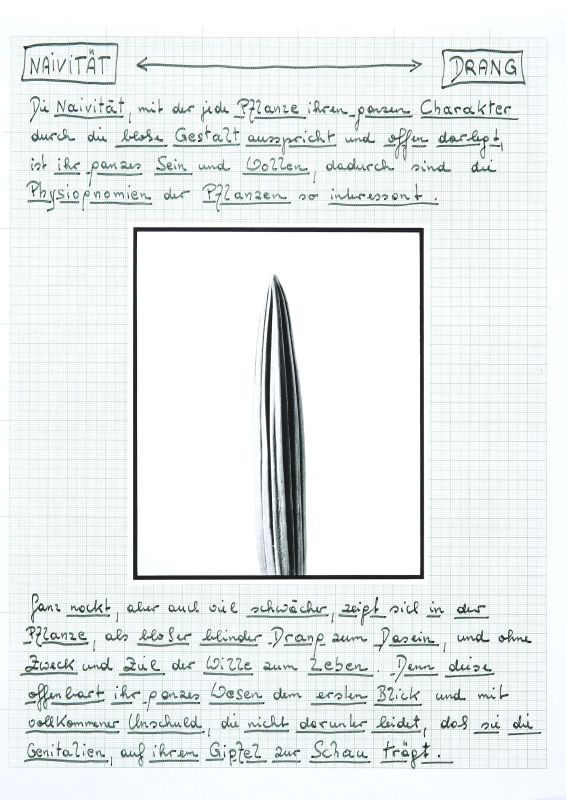 NAIVITÄT DRANG
Die Naivität, mit der jede Pflanze ihren ganzen Charakter
durch die bloße Gestalt ausspricht und offen darlegt,
ist ihr ganzes Sein und Wollen, dadurch sind die
Physiognomien der Pflanzen so interessant.
Ganz nackt, aber auch viel schwächer, zeigt sich in der
Pflanze, als bloßer blinder Drang zum Dasein, und ohne
Zweck und Ziel der Wille zum Leben. Denn diese
offenbart ihr ganzes Wesen dem ersten Blick und mit
vollkommener Unschuld, die nicht darunter leidet, daß sie die
Genitalien, auf ihrem Gipfel zur Schau trägt.